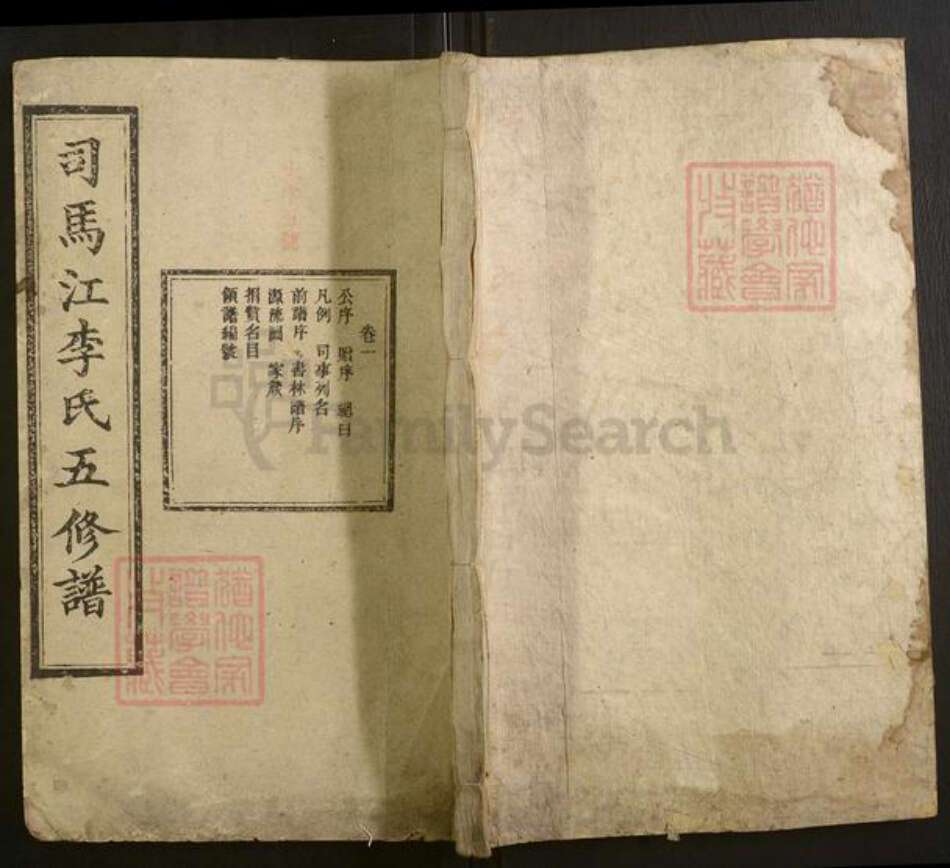 司馬江李氏五修譜
卷一
公序 贈序 總目
凡例 司事列名
前譜序 書林譜序
源流圖 家箴
捐貲名目
領譜編號
猶他家
譜學會
收藏
猶他家
譜學會
收藏
FamilySearch